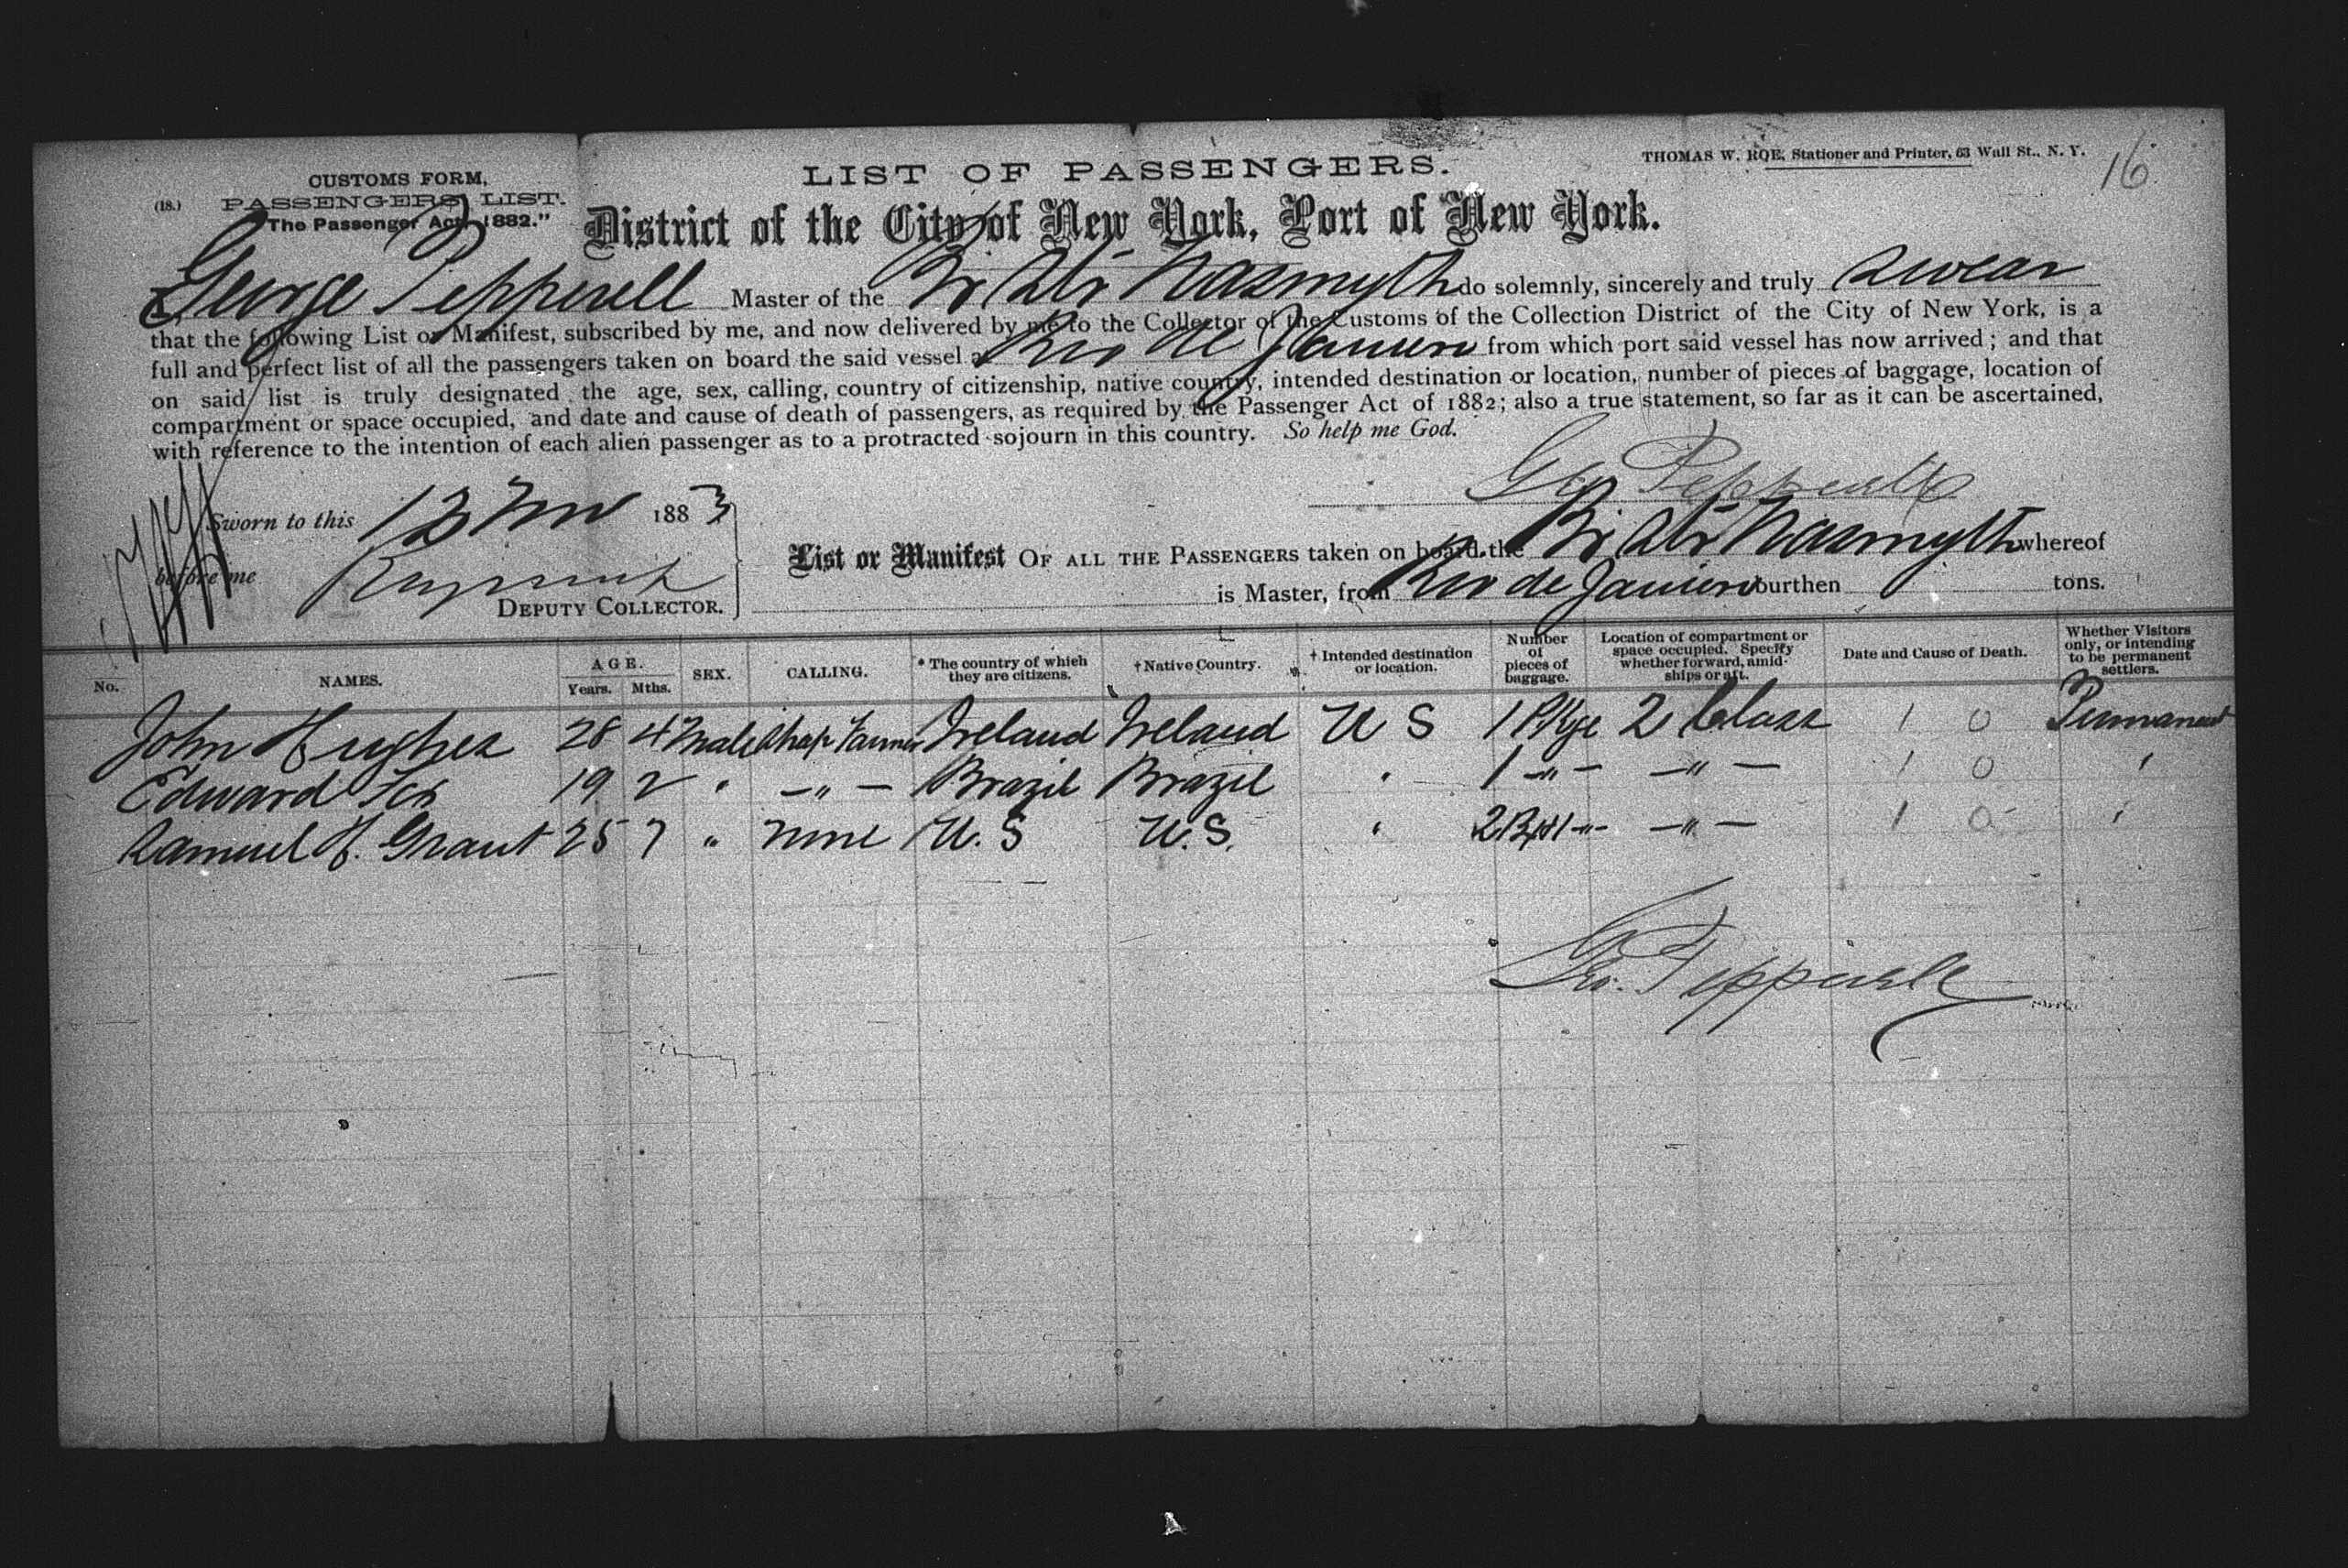 CUSTOMS FORM,
(18.) PASSENGERS LIST.
"The Passenger Act, 1882."
LIST OF PASSENGERS.
THOMAS W. ROE, Stationer and Printer, 63 Wall St., N. Y.
16
District of the City of New York, Port of New York.
George Pepperell Master of the Br Str Nasmyth do solemnly, sincerely and truly swear
that the following List or Manifest, subscribed by me, and now delivered by me to the Collector of the Customs of the Collection District of the City of New York, is a
full and perfect list of all the passengers taken on board the said vessel at Rio de Janiero from which port said vessel has now arrived; and that
on said list is truly designated the age, sex, calling, country of citizenship, native country, intended destination or location, number of pieces of baggage, location of
compartment or space occupied, and date and cause of death of passengers, as required by the Passenger Act of 1882; also a true statement, so far as it can be ascertained,
with reference to the intention of each alien passenger as to a protracted sojourn in this country. So help me God.
Geo Pepperell
Sworn to this 13 Nov 1883
before me
DEPUTY COLLECTOR.
List or Manifest OF ALL THE PASSENGERS taken on board the Br Str Nasmyth whereof
is Master, from Rio de Janiero burthen tons.
No. NAMES. AGE. Years. Mths. SEX. CALLING. * The country of which they are citizens. † Native Country. † Intended destination or location. Number of pieces of baggage. Location of compartment or space occupied. Specify whether forward, amidships or aft. Date and Cause of Death. Whether Visitors only, or intending to be permanent settlers.
John Hughes 28 4 Male Ireland Ireland U S 1 Pkge 2 Class 1 0 Permanent
Edward Fox 19 2 " — " — Brazil Brazil " 1 — " — — " — 1 0 "
Samuel H. Grant 25 7 " None U. S U. S. " 2 — " — 1 0 "
Geo. Pepperell